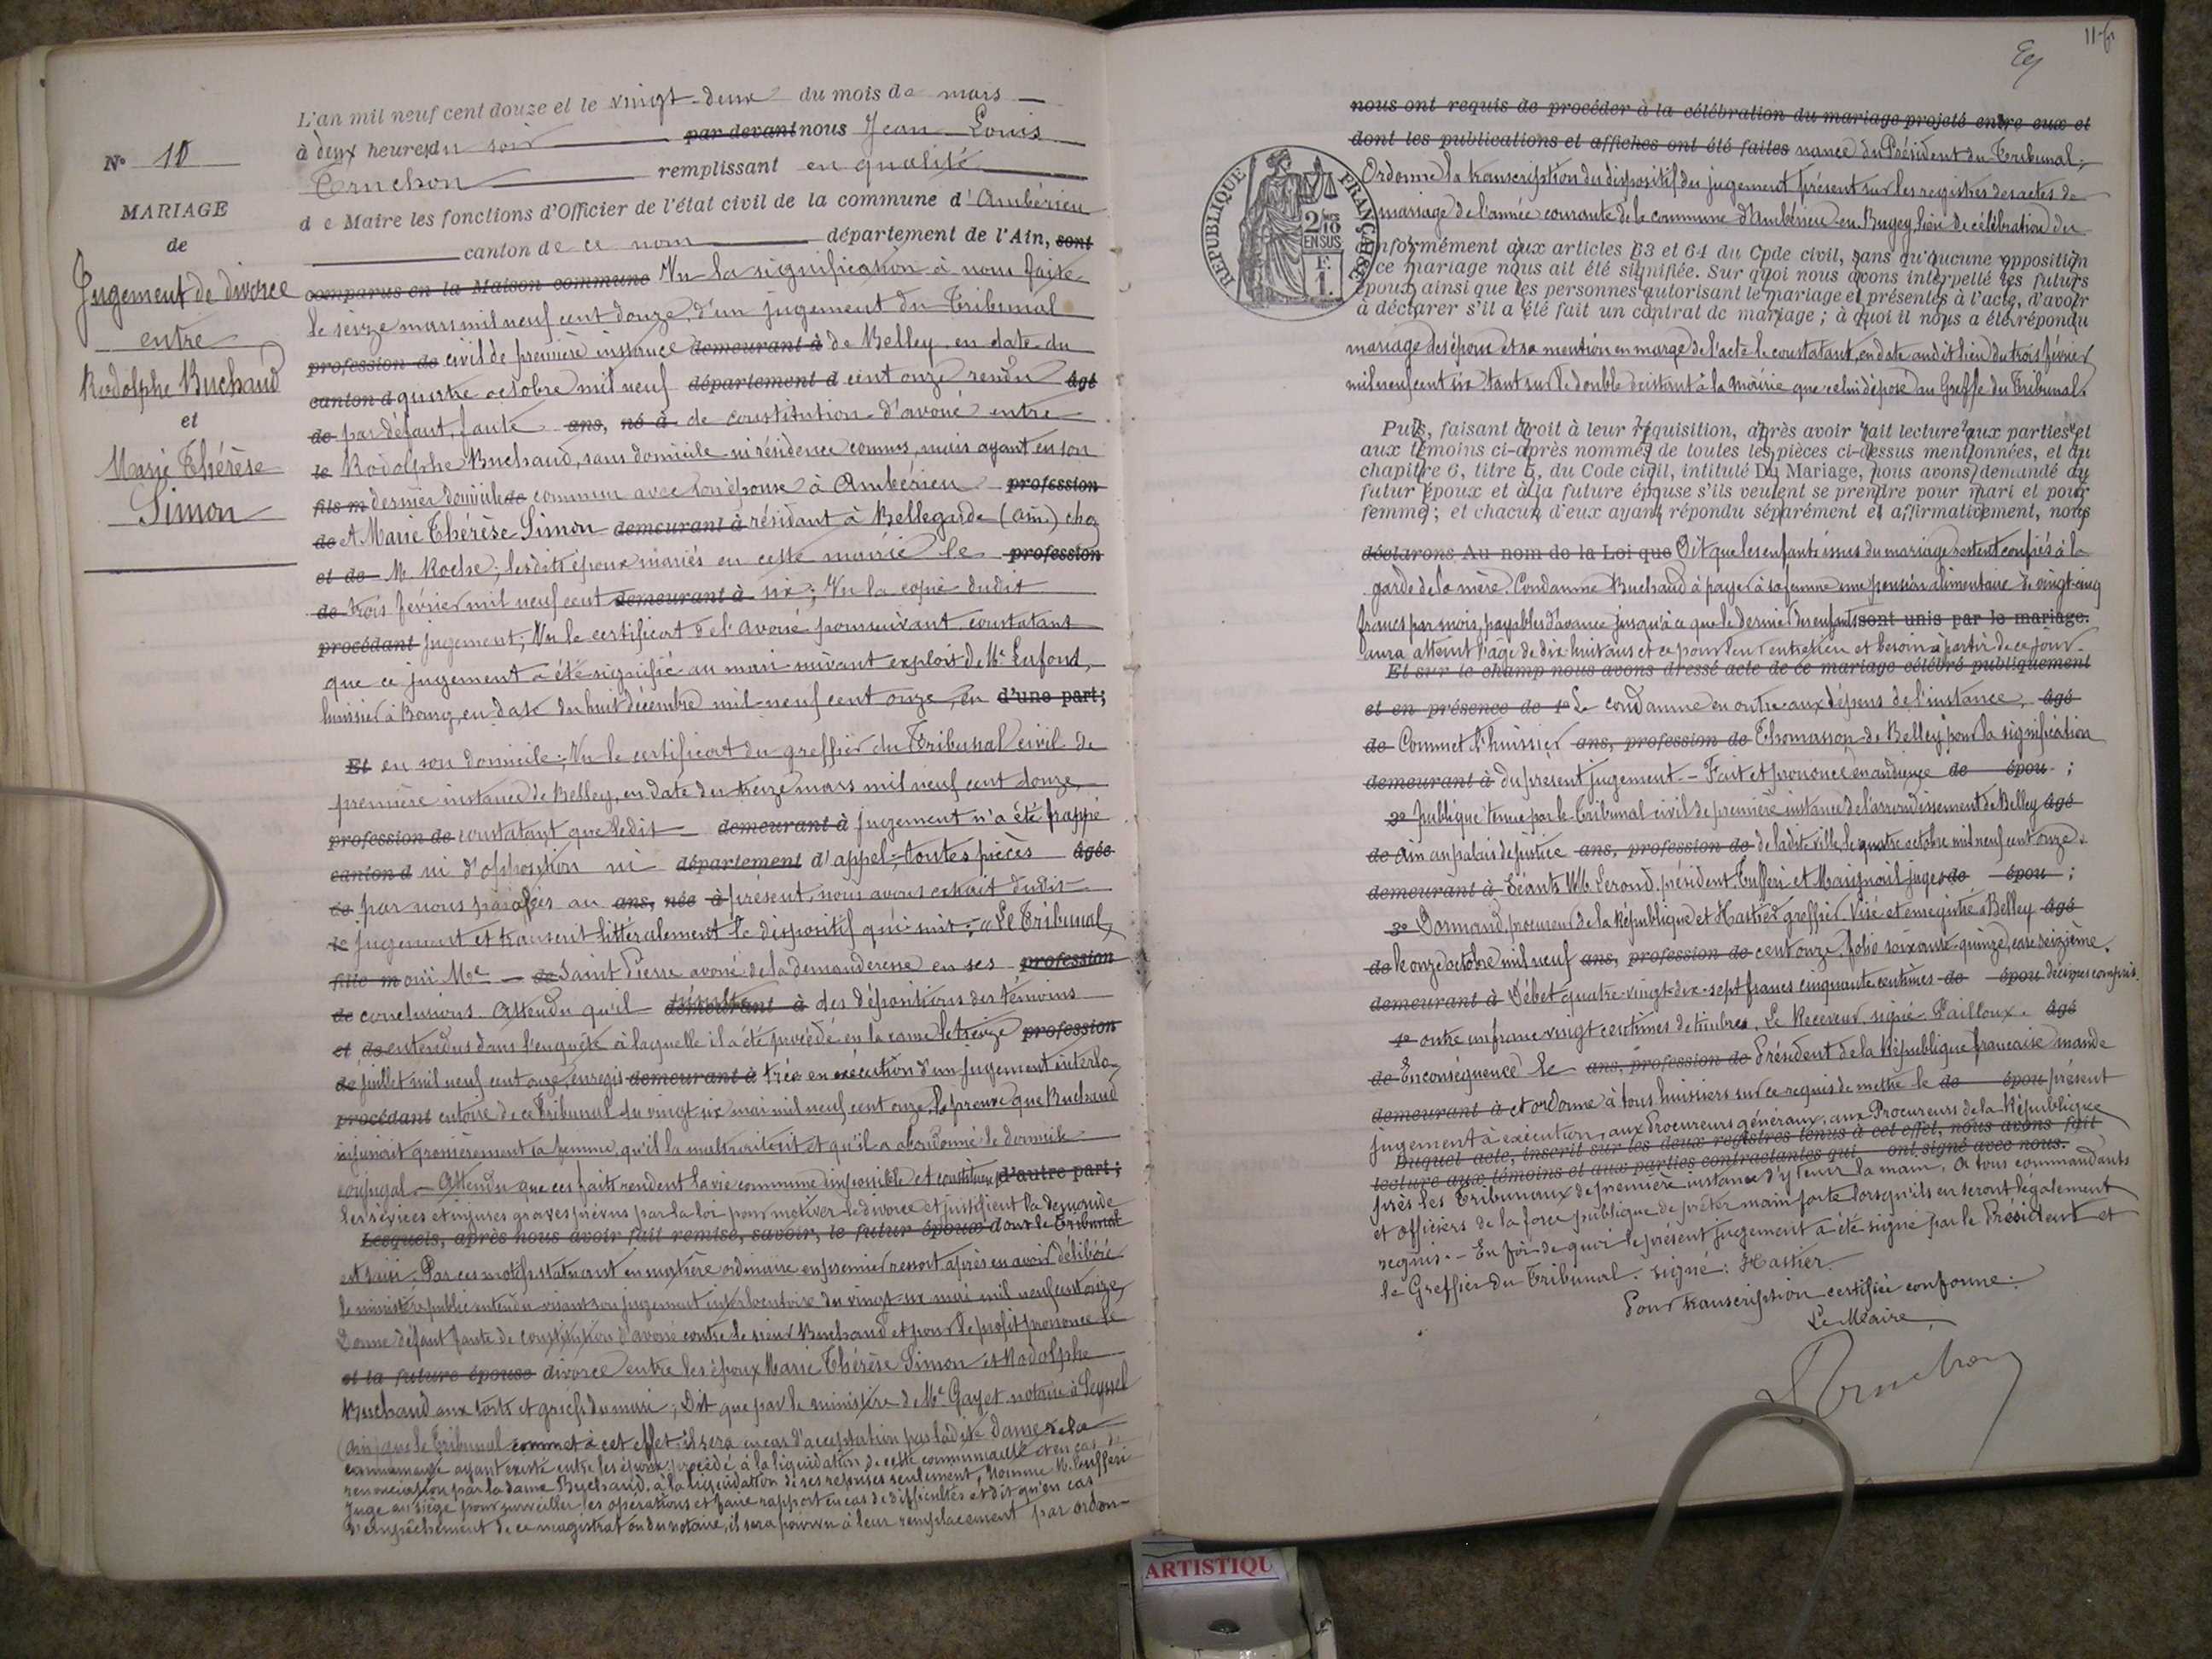 N° 10
MARIAGE
de
Jugement de divorce
entre
Rodolphe Buchaud
et
Marie Thérèse
Simon
L'an mil neuf cent douze et le vingt-deux du mois de mars
à deux heures du soir par devant nous Jean Louis
remplissant en qualité
de Maire les fonctions d'Officier de l'état civil de la commune d'Ambérieu
canton de ce nom département de l'Ain, sont
comparus en la Maison commune Vu la signification à nous faite
le seize mars mil neuf cent douze, d'un jugement du Tribunal
profession de civil de première instance demeurant à de Belley en date du
canton d quatre octobre mil neuf département d cent onze rendu âgé
de par défaut, faute ans, né à de constitution d'avoué entre
le Rodolphe Buchaud, sans domicile ni résidence connus, mais ayant eu son
fils m dernier domicile de commun avec son épouse à Ambérieu profession
de et Marie Thérèse Simon demeurant à résidant à Bellegarde (Ain) chez
et de M. Roche; lesdits époux mariés en cette mairie le profession
de trois février mil neuf cent demeurant à six; Vu la copie dudit
procédant jugement; Vu le certificat de l'avoué poursuivant constatant
que ce jugement a été signifié au mari suivant exploit de Me Lafond,
huissier à Bourg, en date du huit décembre mil neuf cent onze, en d'une part;
Et en son domicile; Vu le certificat du greffier du Tribunal civil de
première instance de Belley, en date du treize mars mil neuf cent douze,
profession de constatant que ledit demeurant à jugement n'a été frappé
canton d ni d'opposition ni département d'appel; toutes pièces âgée
de par nous parafées au ans, née à présent, nous avons extrait dudit
le jugement et transcrit littéralement le dispositif qui suit: "Le Tribunal,
fille m ouï Me de Saint Pierre avoué de la demanderesse en ses profession
de conclusions. Attendu qu'il résulte demeurant à des dépositions des témoins
et de entendus dans l'enquête à laquelle il a été procédé en la cause le treize profession
de juillet mil neuf cent onze, enregis demeurant à trée en exécution d'un jugement interlo-
procédant cutoire de ce Tribunal du vingt-six mai mil neuf cent onze, la preuve que Buchaud
injuriait grossièrement sa femme, qu'il la maltraitait et qu'il a abandonné le domicile
conjugal. - Attendu que ces faits rendent la vie commune impossible et constituent d'autre part;
les sévices et injures graves prévus par la loi pour motiver le divorce et justifient la demande
Lesquels, après nous avoir fait remise, savoir, le futur époux dont le Tribunal
est saisi. Par ces motifs statuant en matière ordinaire en premier ressort après en avoir délibéré
le ministère public entendu visant son jugement interlocutoire du vingt-six mai mil neuf cent onze,
Donne défaut faute de constitution d'avoué contre le sieur Buchaud et pour le profit prononce le
et la future épouse divorce entre les époux Marie Thérèse Simon et Rodolphe
Buchaud aux torts et griefs du mari; Dit que par le ministère de Me Gayet notaire à Seyssel
(Ain) que le Tribunal commet à cet effet il sera en cas d'acceptation par ladite dame de la
communauté ayant existé entre les époux procédé à la liquidation de cette communauté et en cas de
renonciation par la dame Buchaud à la liquidation de ses reprises seulement, Nomme M. Tufferi
Juge au siège pour surveiller les opérations et faire rapport en cas de difficultés et dit qu'en cas
d'empêchement de ce magistrat ou du notaire, il sera pourvu à leur remplacement par ordon-
nous ont requis de procéder à la célébration du mariage projeté entre eux et
dont les publications et affiches ont été faites nance du Président du Tribunal;
Ordonne la transcription du dispositif du jugement présent sur les registres des actes de
mariage de l'année courante de la commune d'Ambérieu en Bugey, lieu de célébration du
RÉPUBLIQUE FRANÇAISE
2/10 EN SUS
F. 1.
conformément aux articles 63 et 64 du Code civil, sans qu'aucune opposition
à ce mariage nous ait été signifiée. Sur quoi nous avons interpellé les futurs
époux ainsi que les personnes autorisant le mariage et présentes à l'acte, d'avoir
à déclarer s'il a été fait un contrat de mariage; à quoi il nous a été répondu
mariage des époux et sa mention en marge de l'acte le constatant, en date audit lieu du trois février
mil neuf cent six tant sur le double existant à la mairie que celui déposé au Greffe du Tribunal.
Puis, faisant droit à leur réquisition, après avoir fait lecture aux parties et
aux témoins ci-après nommés de toutes les pièces ci-dessus mentionnées, et du
chapitre 6, titre 5, du Code civil, intitulé Du Mariage, nous avons demandé au
futur époux et à la future épouse s'ils veulent se prendre pour mari et pour
femme; et chacun d'eux ayant répondu séparément et affirmativement, nous
déclarons Au nom de la Loi que Dit que les enfants issus du mariage restent confiés à la
garde de la mère. Condamne Buchaud à payer à sa femme une pension alimentaire de vingt-cinq
francs par mois, payables d'avance jusqu'à ce que le dernier des enfants sont unis par le mariage.
aura atteint l'âge de dix-huit ans et ce pour leur entretien et besoins à partir de ce jour.
Et sur le champ nous avons dressé acte de ce mariage célébré publiquement
et en présence de 1° Le condamne en outre aux dépens de l'instance, âgé
de Commet l'huissier ans, profession de Thomasson de Belley pour la signification
demeurant à du présent jugement. - Fait et prononcé en audience de épou ;
2° publique tenue par le Tribunal civil de première instance de l'arrondissement de Belley âgé
de Ain au palais de justice ans, profession de de ladite ville, le quatre octobre mil neuf cent onze.
demeurant à Séants MM. Lerond, président, Tufferi et Maignoil juges de épou ;
3° Dormand, procureur de la République et Hastier greffier. Visé et enregistré à Belley âgé
de le onze octobre mil neuf ans, profession de cent onze. folio soixante-quinze, case seizième.
demeurant à Débet quatre-vingt-dix-sept francs cinquante centimes de épou décimes compris.
4° outre un franc vingt centimes de timbres. Le Receveur, signé Pailloux. âgé
de En conséquence le ans, profession de Président de la République française mande
demeurant à et ordonne à tous huissiers sur ce requis de mettre le de épou présent
jugement à exécution, aux Procureurs généraux, aux Procureurs de la République
Duquel acte, inscrit sur les deux registres tenus à cet effet, nous avons fait
lecture aux témoins et aux parties contractantes qui ont signé avec nous.
près les Tribunaux de première instance d'y tenir la main, à tous commandants
et officiers de la force publique de prêter main forte lorsqu'ils en seront légalement
requis. - En foi de quoi le présent jugement a été signé par le Président et
le Greffier du Tribunal. signé: Hastier.
Pour transcription certifiée conforme:
Le Maire,
ARTISTIQU